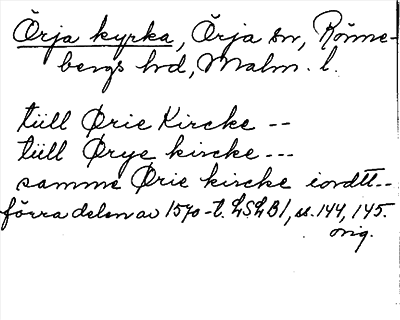 Örja kyrka, Örja sn, Rönne-
bergs hd, Malm. l.
tüll Ørie Kircke --
tüll Ørye kircke ---
samme Ørie kircke iordtt--
förra delen av 1570-t. LSLB1, ss. 144, 145.
orig.